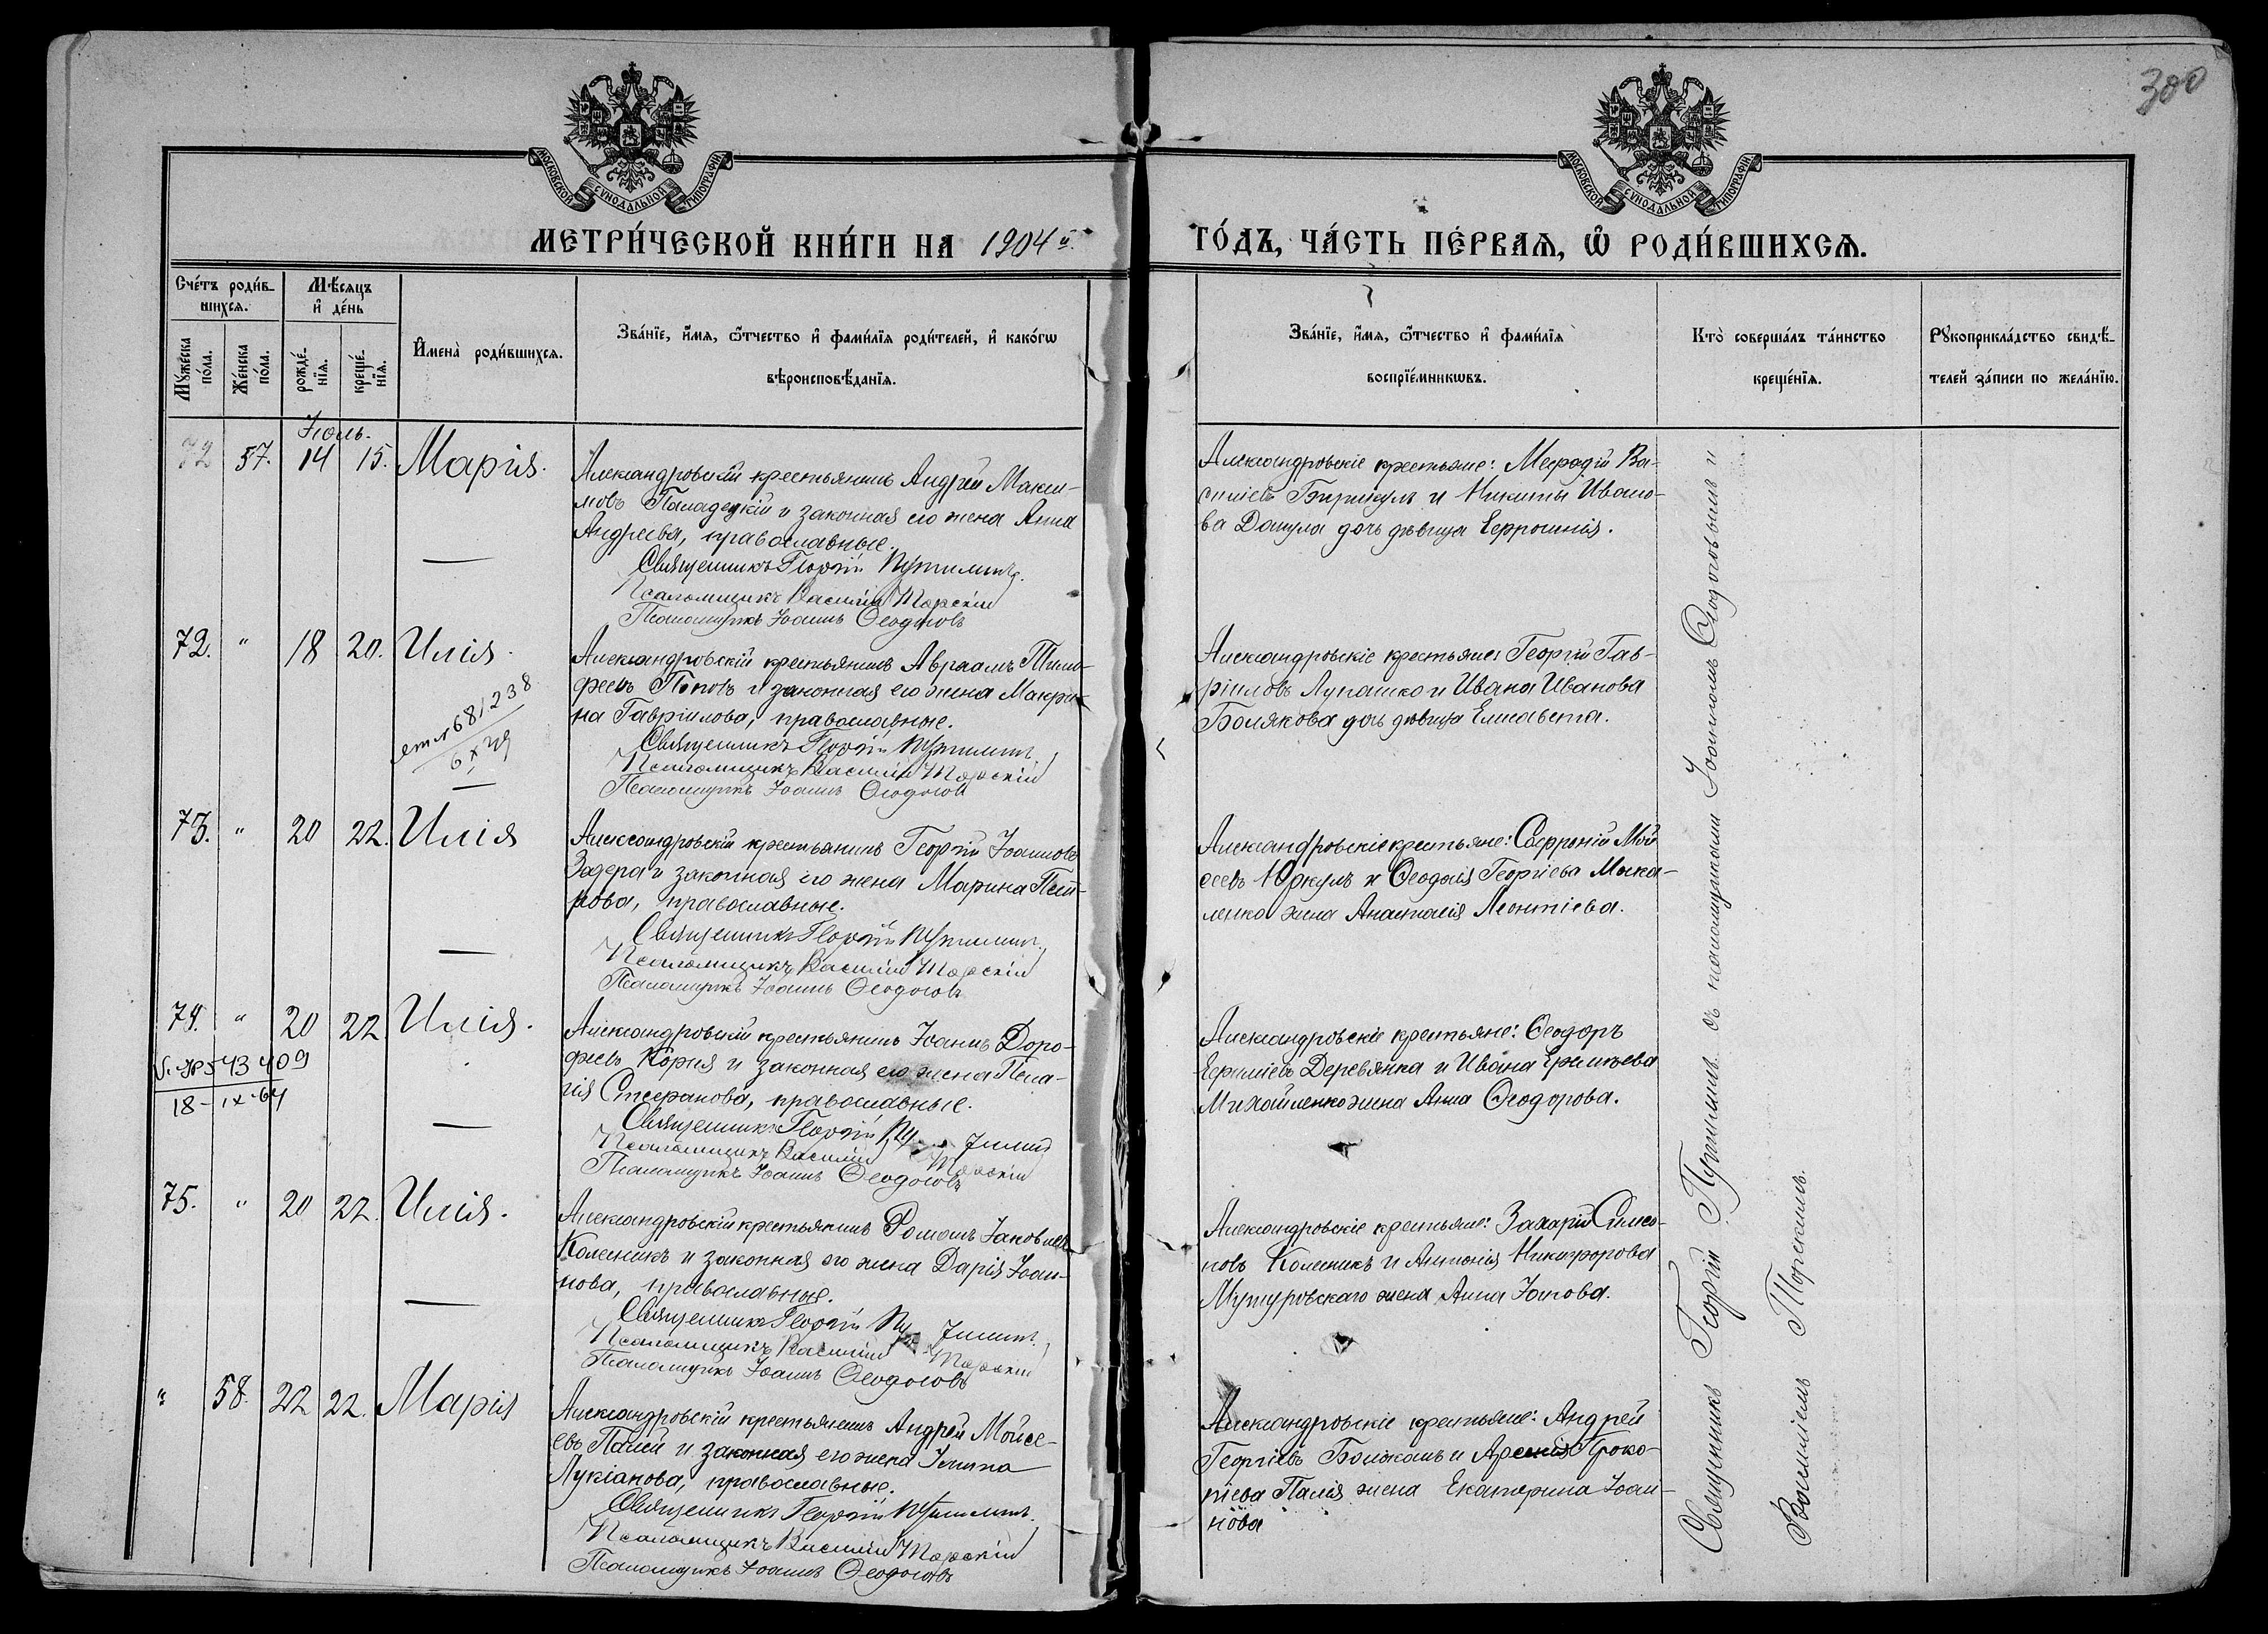 300
МОСКОВСКОЙ СУНОДАЛЬНОЙ ТИПОГРАФІИ
МОСКОВСКОЙ СУНОДАЛЬНОЙ ТИПОГРАФІИ
МЕТРИ́ЧЕСКОЙ КНИ́ГИ НА 1904й.
ГО́ДЪ, ЧА́СТЬ ПЕ́РВАѦ, Ѡ҆ РОДИ́ВШИХСѦ.
Сче́тъ роди́в-
шихсѧ.
Мꙋ́жеска по́ла.
Же́нска по́ла.
Мѣ́сяцъ
и҆ де́нь
рожде́-
нїѧ.
креще́-
нїѧ.
И҆мена̀ роди́вшихсѧ.
Зва́нїе, и҆́мѧ, ѻ҆́тчество и҆ фами́лїѧ роди́телей, и҆ како́гѡ
вѣроисповѣ́данїѧ.
Зва́нїе, и҆́мѧ, ѻ҆́тчество и҆ фами́лїѧ
воспрїе́мникѡвъ.
Кто̀ соверша́лъ та́инство
креще́нїѧ.
Рꙋкоприкла́дство свидѣ́-
телей за́писи по жела́нїю.
Іюль.
72 57. 14 15. Марія.
Александровскій крестьянинъ Андрей Макси-
мовъ Паладецкій и законная его жена Анна
Андреева, православные.
Священникъ Георгій Путилинъ.
Псаломщикъ Василій Торскій
Псаломщикъ Іоаннъ Ѳеодосовъ
Александровскіе крестьяне: Мефодій Ва-
силіевъ Бирикулъ и Никиты Ивано-
ва Данула дочь дѣвица Евфросинія.
72. " 18 20. Илія.
681238
Александровскій крестьянинъ Авраамъ Тимо-
феевъ Поповъ и законная его жена Макри-
на Гавріилова, православные.
Священникъ Георгій Путилинъ.
Псаломщикъ Василій Торскій
Псаломщикъ Іоаннъ Ѳеодосовъ
Александровскіе крестьяне: Георгій Гав-
ріиловъ Лупашко и Ивана Иванова
Болякова дочь дѣвица Елисавета.
73. " 20 22. Илія
Александровскій крестьянинъ Георгій Іоанновъ
Задера и законная его жена Марина Пет-
рова, православные.
Священникъ Георгій Путилинъ.
Псаломщикъ Василій Торскій
Псаломщикъ Іоаннъ Ѳеодосовъ
Александровскіе крестьяне: Софроній Мой
сеевъ Юркулъ и Ѳеодосія Георгіева Моска-
ленко жена Анастасія Леонтіева.
74. " 20 22. Илія.
43409
18-IX-64
Александровскій крестьянинъ Іоаннъ Доро-
феевъ Корня и законная его жена Пела-
гія Стефанова, православные.
Священникъ Георгій Путилинъ
Псаломщикъ Василій Торскій
Псаломщикъ Іоаннъ Ѳеодосовъ
Александровскіе крестьяне: Ѳеодоръ
Деревянка и Ивана
Михайленко жена Анна Ѳеодорова.
75. " 20 22. Илія.
Александровскій крестьянинъ Романъ Іаковлевъ
Колесникъ и законная его жена Дарія Іоан-
нова, православные.
Священникъ Георгій Путилинъ.
Псаломщикъ Василій Торскій
Псаломщикъ Іоаннъ Ѳеодосовъ
Александровскіе крестьяне: Захарій Симео-
новъ Колесникъ и Антонія Никифорова
жена Анна
" 58. 22 22. Марія
Александровскій крестьянинъ Андрей Мойсе-
евъ Палій и законная его жена Ирина
Лукіанова, православные.
Священникъ Георгій Путилинъ.
Псаломщикъ Василій Торскій
Псаломщикъ Іоаннъ Ѳеодосовъ
Александровскіе крестьяне: Андрей
Георгіевъ и Арсенія Проко-
піева Палія жена Екатерина Іоан-
нова
Священникъ Георгій Путилинъ съ псаломщиками Іоанномъ Ѳеодосовымъ и
Василіемъ Торскимъ.